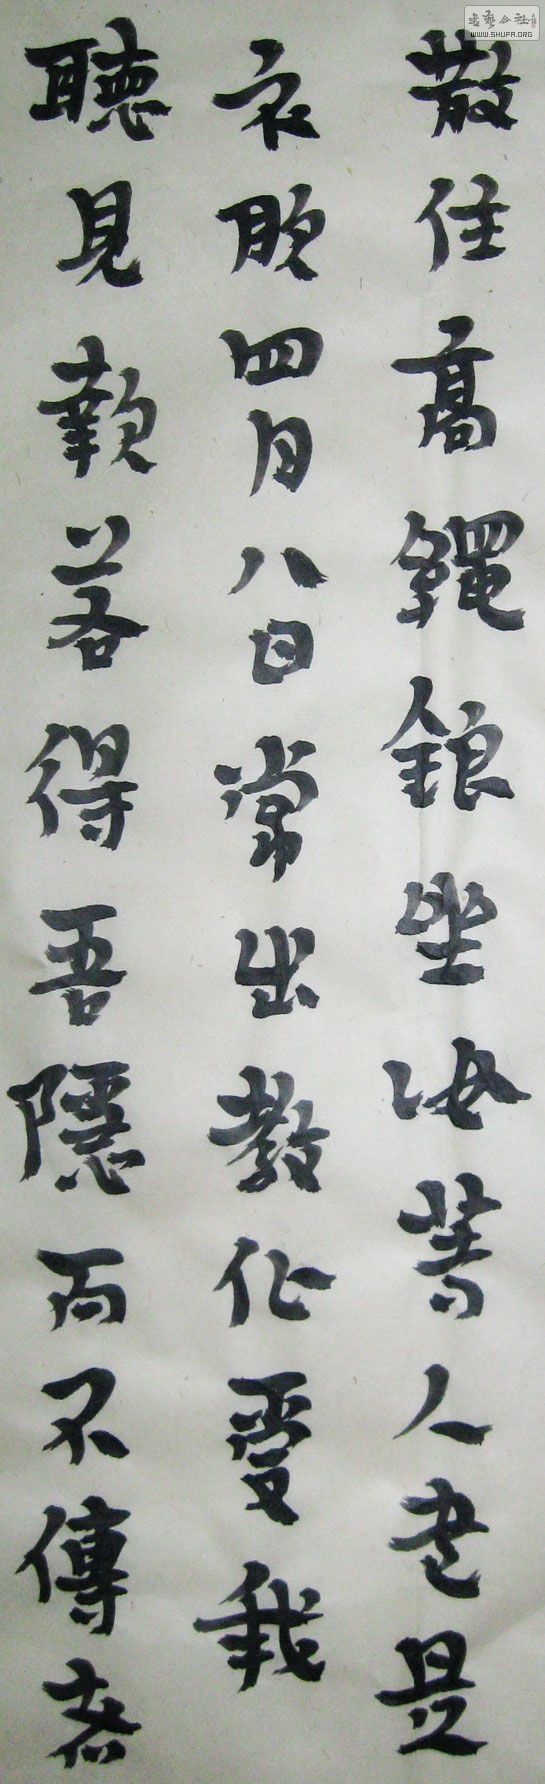 散任高繩銀坐比昔人老是
衣服四月八日常出教化受我
聽見歎若得吾隱而不傳者
書藝公社
WWW.SHUFA.ORG